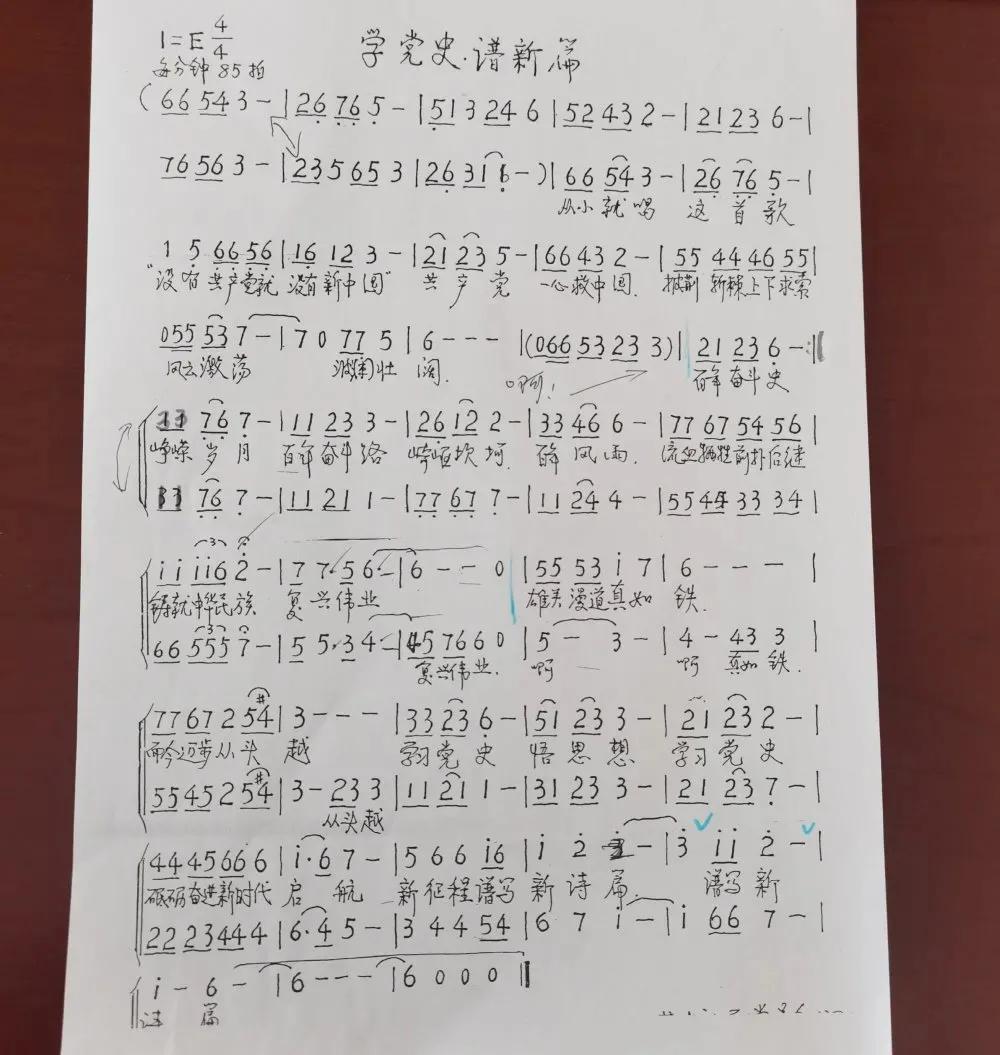 学党史·谱新篇
1=E 4/4
每分钟85拍
(66 54 3 - | 26 76 5 - | 51 3 24 6 | 52 43 2 - | 21 23 6 - |
76 56 3 - | 23 5 65 3 | 26 31 6 -) | 66 54 3 - | 26 76 5 - |
从小就唱 这首歌
1 5 66 56 | 16 12 3 - | 21 23 5 - | 66 43 2 - | 55 44 46 55 |
"没有共产党就 没有新中国" 共产党 一心救中国. 披荆斩棘上下求索
055 53 7 - | 7 0 77 5 | 6 - - - | (066 53 23 3) | 21 23 6 - :||
风云激荡 波澜壮阔. 啊! 百年奋斗史
33 76 7 - | 11 23 3 - | 26 12 2 - | 33 46 6 - | 77 67 54 56 |
峥嵘岁月 百年奋斗路 崎岖坎坷. 百年风雨. 流血牺牲前扑后继
33 76 7 - | 11 21 1 - | 77 67 7 - | 11 24 4 - | 55 44 33 34 |
i i i i6 2 - | 7 7· 5 6 - | 6 - - 0 | 55 53 i 7 | 6 - - - |
铸就中华民族 复兴伟业 雄关漫道真如铁.
66 555 7 - | 5 5· 3 4 - | 45 76 6 0 | 5 - 3 - | 4 - 43 3 |
复兴伟业. 啊 啊 真如铁.
77 67 2 5#4 | 3 - - - | 33 23 6 - | 51 23 3 - | 21 23 2 - |
而今迈步从头越 学习党史 悟思想 学习党史
55 45 2 5#4 | 3 - 23 3 | 11 21 1 - | 31 23 3 - | 21 23 7 - |
从头越
44 45 66 6 | i·6 7 - | 5 6 6 i6 | i 2 3 - | 3 ii 2 - |
砥砺奋进新时代 启航 新征程谱写新诗篇. 谱写新
22 23 44 4 | 6·4 5 - | 3 4 4 54 | 6 7 i - | i 66 7 - |
i - 6 - | 6 - - - | 6 0 0 0 ||
诗篇